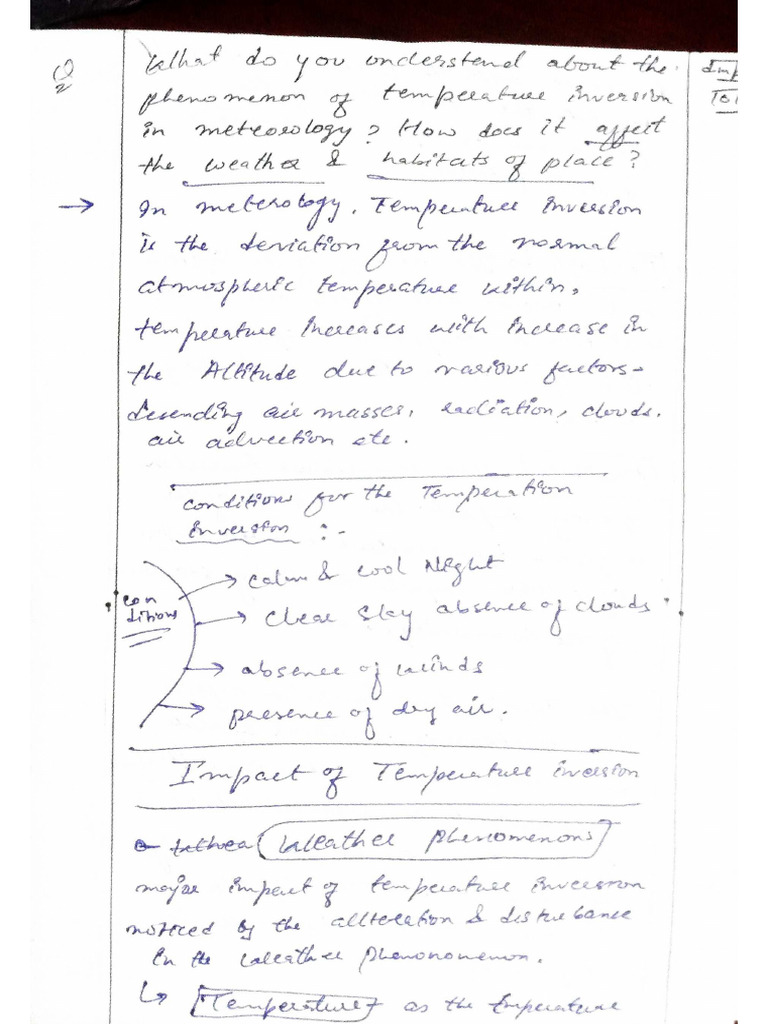 Q2
What do you understand about the
phenomenon of temperature inversion
in meteorology? How does it affect
the weather & habitats of place?
Imp
→ In meterology, Temperature inversion
is the deviation from the normal
atmospheric temperature within,
temperature increases with increase in
the Altitude due to various factors-
desending air masses, radiation, clouds,
air advection etc.
conditions for the Temperation
inversion :-
con
ditions
→ calm & cool Night
→ clear sky absence of clouds
→ absence of winds
→ presence of dry air.
Impact of Temperature inversion
Weather phenomenons
majre impact of temperature inversion
noticed by the allteration & disturbance
in the weather phenonomenon.
↳ Temperature as the temperature